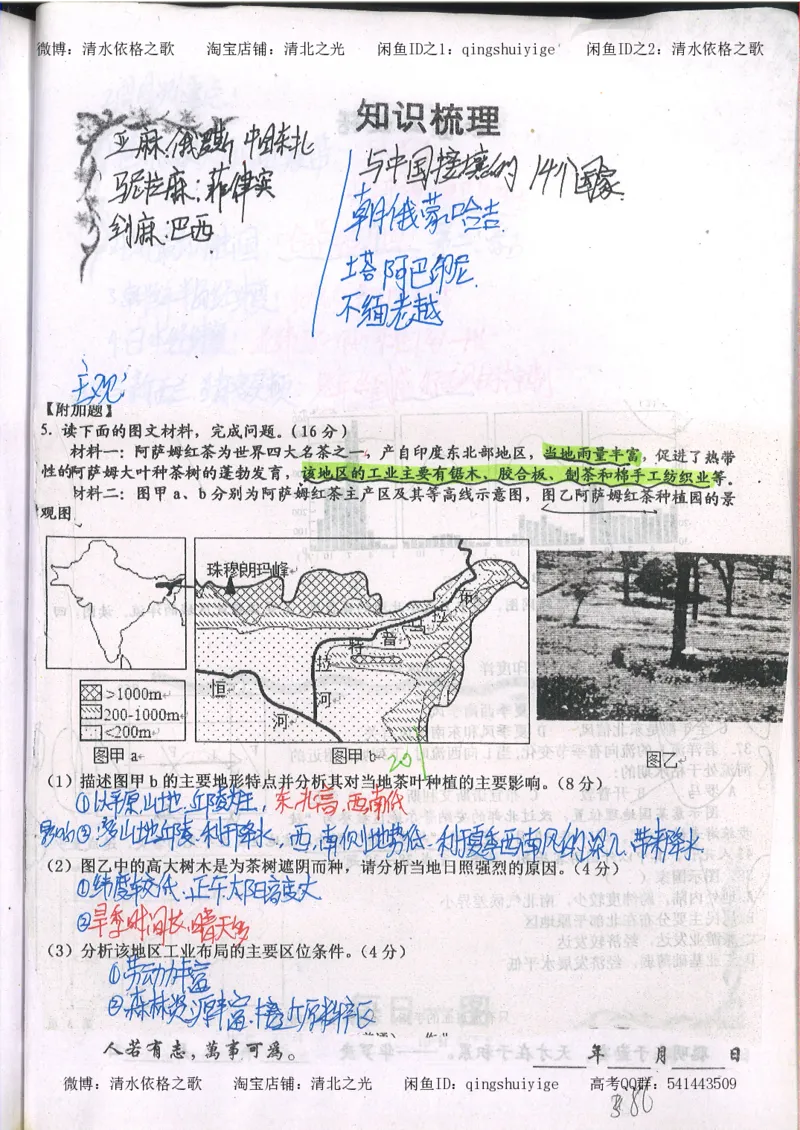 微博：清水依格之歌 淘宝店铺：清北之光 闲鱼ID之1：qingshuiyige 闲鱼ID之2：清水依格之歌
知识梳理
亚麻：俄罗斯 中国 
马尼拉麻：菲律宾
剑麻：巴西
与中国接壤的 14个国家
朝俄蒙哈吉
塔阿巴印尼
不缅老越
主观：
【附加题】
5. 读下面的图文材料，完成问题。（16分）
材料一：阿萨姆红茶为世界四大名茶之一，产自印度东北部地区，当地雨量丰富，促进了热带
性的阿萨姆大叶种茶树的蓬勃发育，该地区的工业主要有锯木、胶合板、制茶和棉手工纺织业等。
材料二：图甲 a、b 分别为阿萨姆红茶主产区及其等高线示意图，图乙阿萨姆红茶种植园的景
观图
珠穆朗玛峰
布
拉
马
普
特
拉
河
恒
河
>1000m
200-1000m
<200m
图甲 a
图甲 b
20
图乙
（1）描述图甲 b 的主要地形特点并分析其对当地茶叶种植的主要影响。（8分）
①以平原山地、丘陵为主，东北高，西南低
影响②多山地丘陵，利于降水，西、南侧地势低，利夏季西南风的深入，带来降水
（2）图乙中的高大树木是为茶树遮阴而种，请分析当地日照强烈的原因。（4分）
①纬度较低，正午太阳高度大
②旱季时间长，晴天多
（3）分析该地区工业布局的主要区位条件。（4分）
①劳动力丰富
②森林资源丰富，接近原料产区
人若有志，萬事可為。
年 月 日
微博：清水依格之歌 淘宝店铺：清北之光 闲鱼ID：qingshuiyige 高考QQ群：541443509